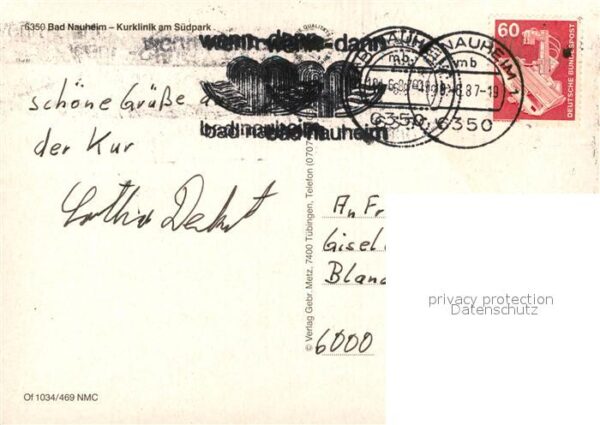 6350 Bad Nauheim – Kurklinik am Südpark
wann-dann
bad nauheim
BAD NAUHEIM 1
mb
-6.87-19
6350
60
DEUTSCHE BUNDESPOST
schöne Grüße
der Kur
An
Gisel
Blan
6000
© Verlag Gebr. Metz, 7400 Tübingen, Telefon (070
privacy protection
Datenschutz
Of 1034/469 NMC